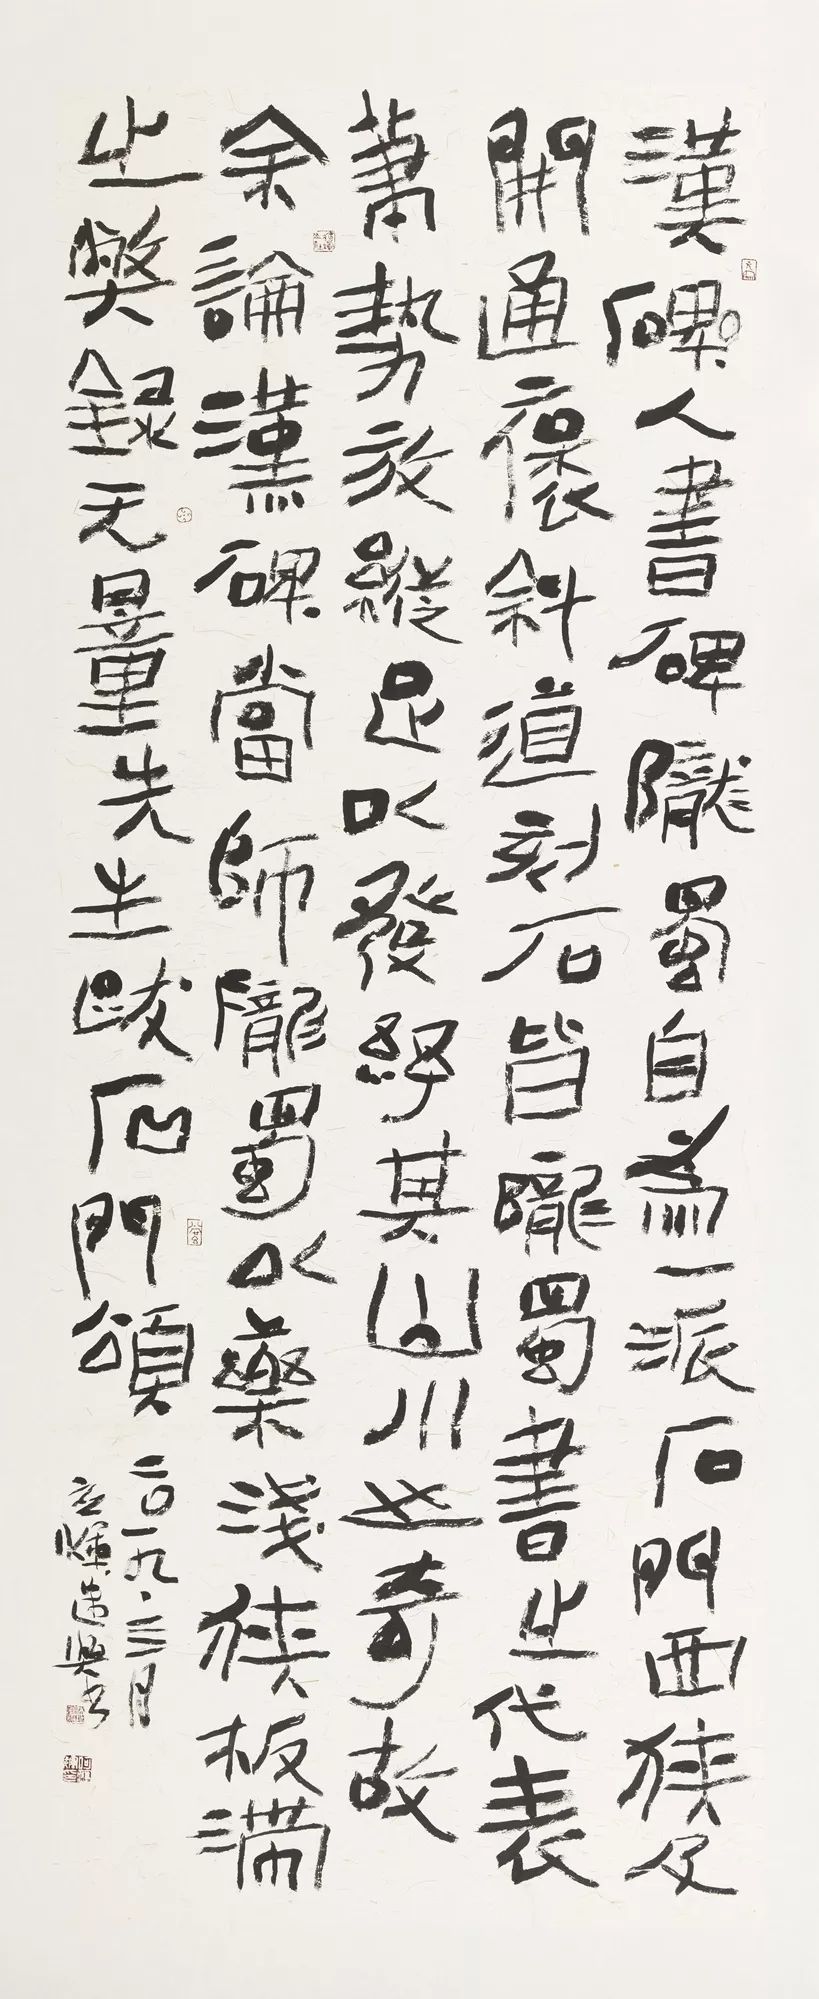 漢碑人書碑隴蜀自為一派石門西狹及
開通褒斜道刻石皆隴蜀書之代表
業勢放縱足以發紓其山川之奇故
余論漢碑當師隴蜀以藥淺狹板滯
之弊錄无量先生跋石門頌
二〇一九·三月
應輝遣興書